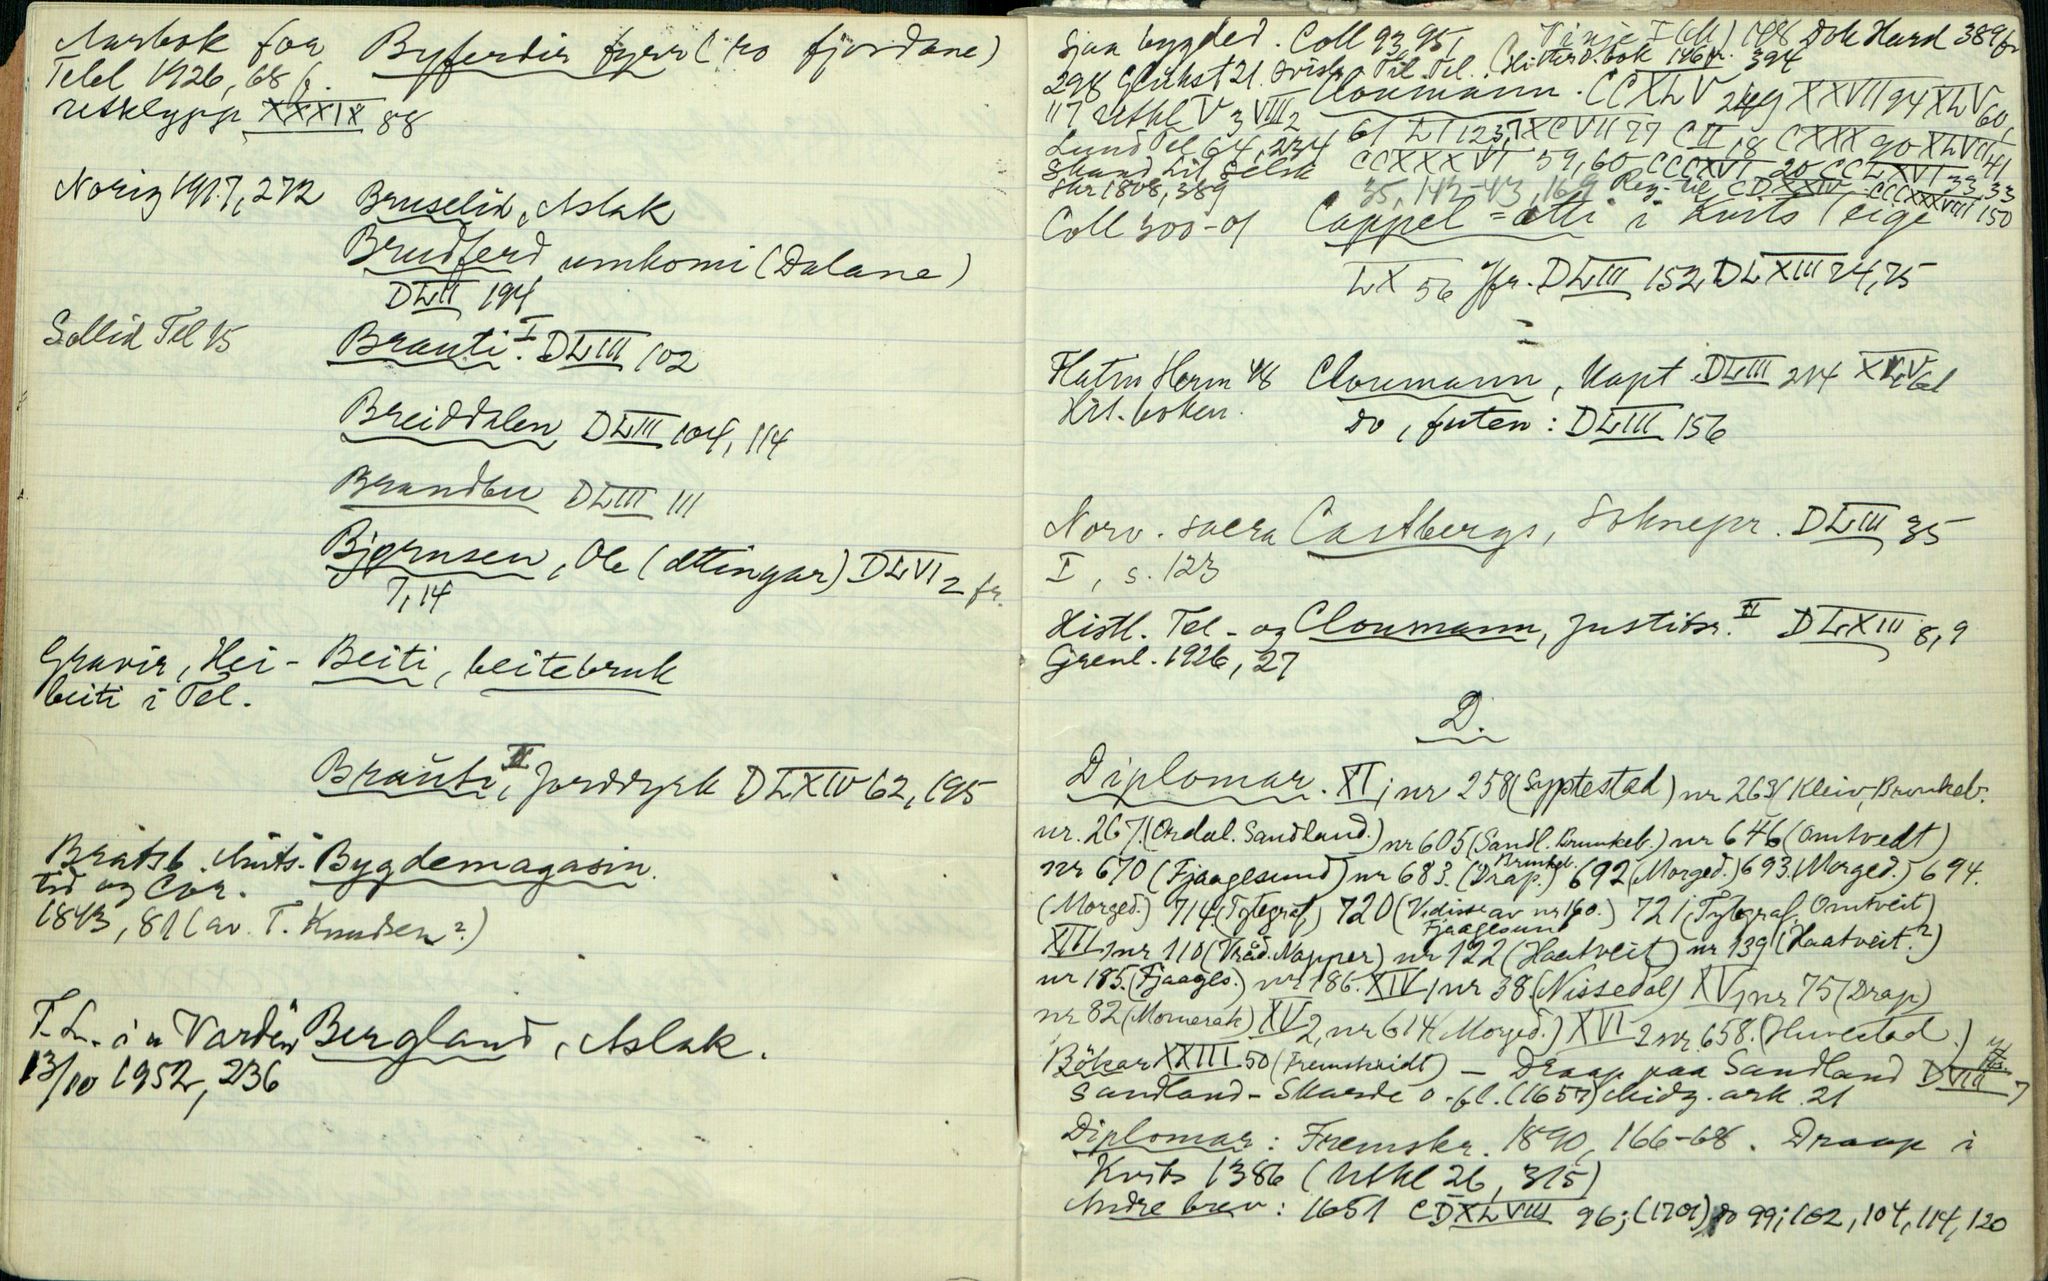 Aarbok for Byferdir fyrr (ro fjordane)
Tel 1926, 68 f.
utklypp XXXIX 88
Noriz 1917, 272 Bruselid, Aslak
Brudferd umkomi (Dalane)
DLII 194
Sollid Tel 15 Brauti I. DLIII 102
Breiddalen DLIII 104, 114
Brandbu DLIII 111
Bjørnsen, Ole (ættingar) DLVI 2 fr.
7, 14
Gravir, Hei- Beiti, beitebruk
beiti i Tel.
Brauti II, jorddyrk DLXIV 62, 195
Bratsb. Amts- Bygdemagasin.
tid og Cor.
1843, 81 (av T. Knudsen?)
T. L. i "Varden" Bergland, Aslak.
13/10 1952, 236
Sjaa bygded. Coll 93, 95, Vinje I (ill) 148 Dok Hard 389 fr
298 Glükst 21. Til. Tel. 146 fr. 394
117 Utkl V 3 VIII 2 Cloumann. CCXLV 249 XXVII 94 XLV 60,
Lund Tel 64, 234 61 LI 123, XCVII 77 CII 18 CXXX 90 XLVII 41
Skand Lit Selsk CCXXXVI 59, 60 CCCXVI 20 CCLXVI 33, 33
Skr 1808, 389 35, 142-43, 169 Reg-tie CDXXIV CCCXXXVIII 150
Coll 300-01 Cappel = ætti i Kvits eige
LX 56 Jfr. DLIII 152 DLXIII 74, 75
Flatin Herm 48 Cloumann, Kapt DLIII 214 XLV 61
Kri. boken. do, futen: DLIII 156
Norv. sacra Castbergs, Soknepr. DLIII 35
I, s. 123
Histl. Tel- og Cloumann, Justitsr. II DLXIII 8, 9
Grenl. 1926, 27
D.
Diplomar. XI, nr 258 (Syptestad) nr 263 (Kleiv, Brunkeb.
nr. 267 (Ordal. Sandland.) nr 605 (Sandl. Brunkeb.) nr 646 (Omtvedt)
nr 670 (Fjaagesund) nr 683. (Drap. Brunkeb.) 692 (Morged.) 693 (Morged.) 694.
(Morged.) 714 (Tytegraf) 720 (Vidisse av nr 160.) 721 (Tytegraf, Omtveit)
Fjaagesund
XIII, nr 110 (Vråd. Napper) nr 122 (Haatveit) nr 139 (Haatveit?)
nr 185. (Fjaages.) nr 186. XIV, nr 38 (Nissedal) XV, nr 75 (Drap)
nr 82 (Momerak) XV 2, nr 614 (Morged.) XVI 2 nr. 658. (Huvestad.)
Bökar XXIII 50 (Fremskridt) — Draap paa Sandland DVIII 7
Sandland - Skarde o. fl. (1657) Midz. ark 21
Diplomar: Fremskr. 1890, 166-68. Draap i
Kvits 1386 (Utkl 26, 315)
Andre brev: 1651 CDXLVIII 96; (1701) do 99; 102, 104, 114, 120